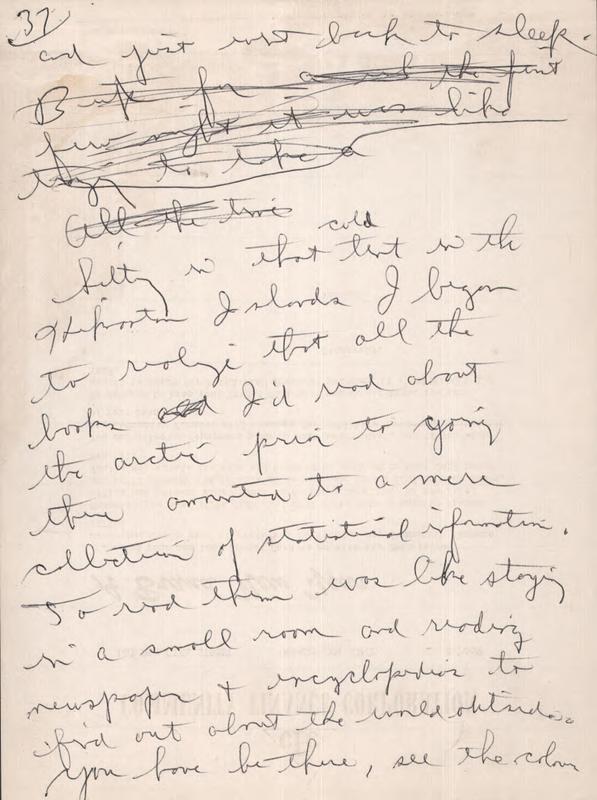 37
and just went back to sleep.
But for and the first
few nights it was like
trying to take a
All the time
cold
Sitting in that tent in the
Islands I began
to realize that all the
books and I'd read about
the arctic prior to going
there amounted to a mere
collection of statistical information.
To read them was like staying
in a small room and reading
newspapers + encyclopedias to
find out about the world outside.
You have be there, see the colour